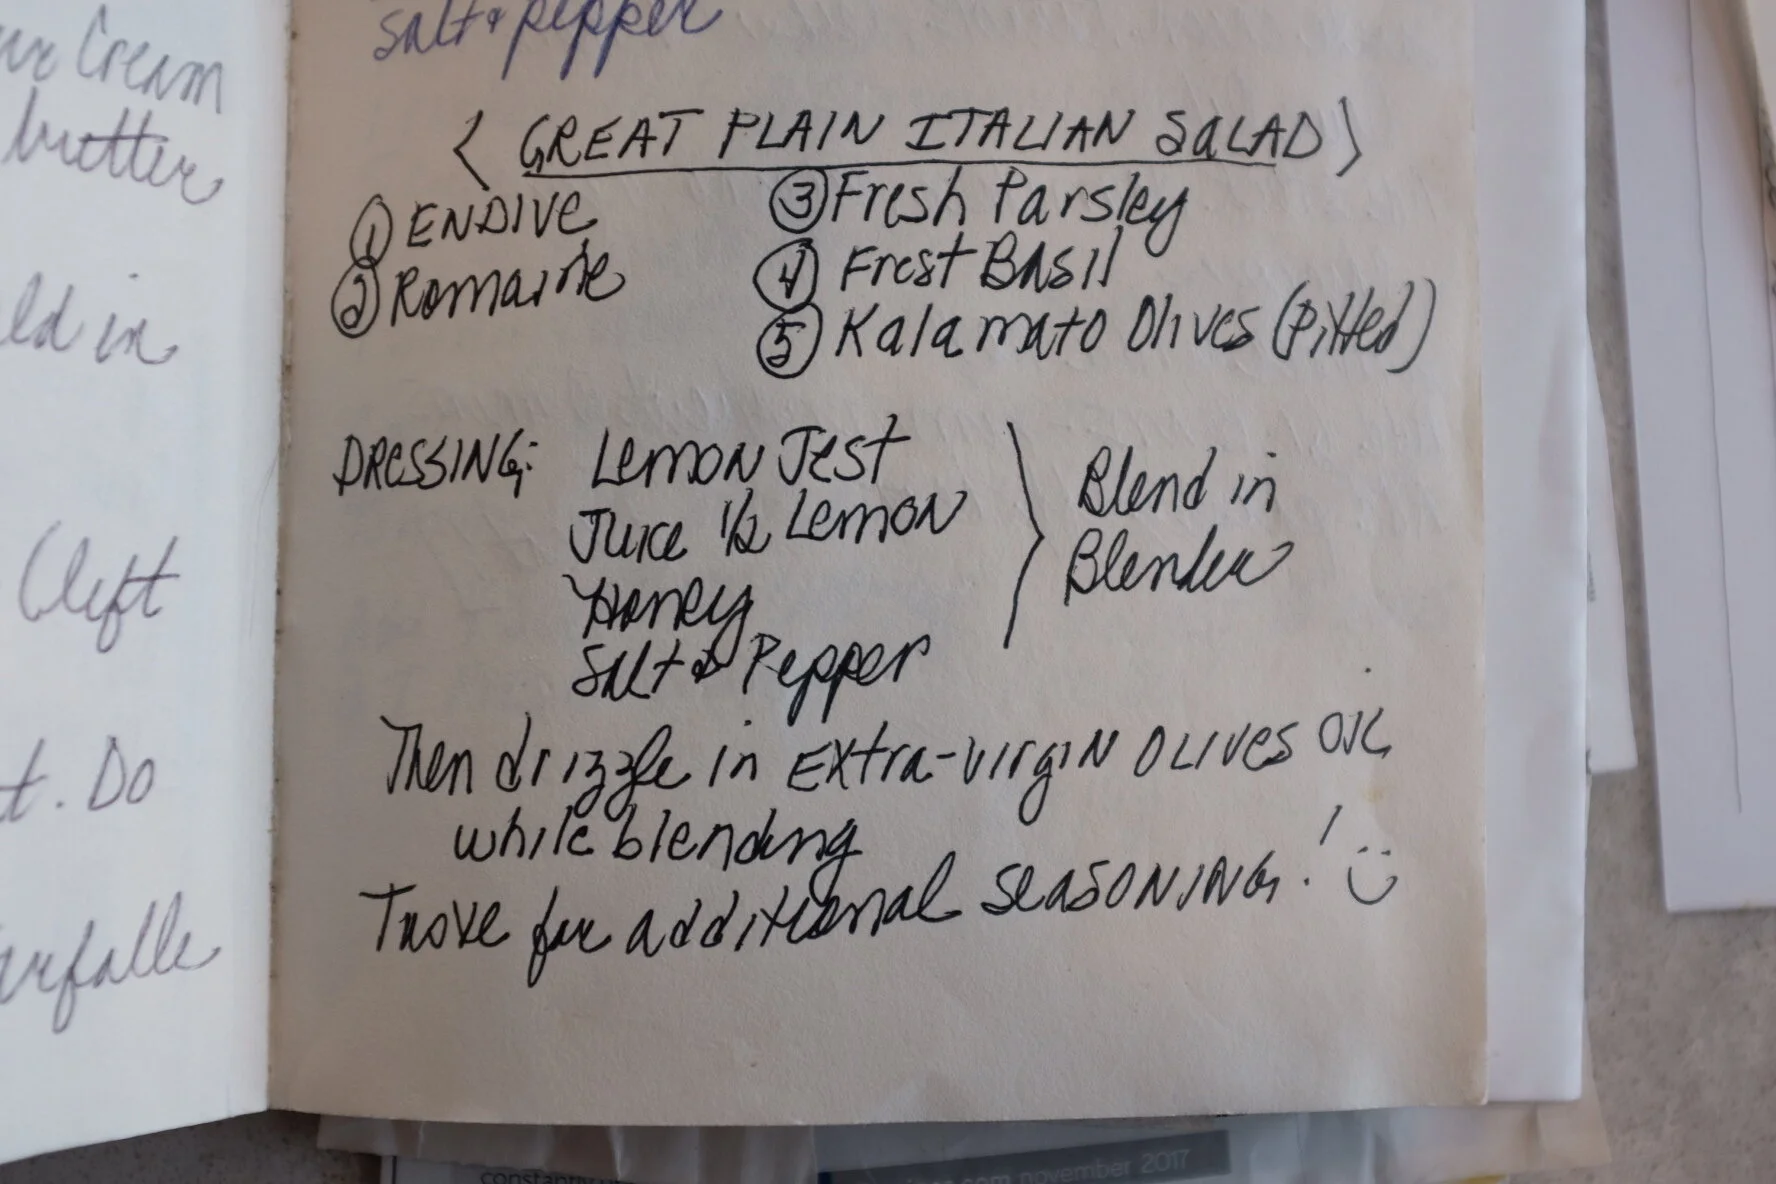 Cream
butter
ld in
(left
t. Do
arfalle
salt & pepper
< GREAT PLAIN ITALIAN SALAD >
① ENDIVE
② Romaine
③ Fresh Parsley
④ Frest Basil
⑤ Kalamato Olives (pitted)
DRESSING: Lemon Zest
Juice 1/2 Lemon
Honey
Salt & Pepper
Blend in
Blender
Then drizzle in Extra-virgin OLIVES OIL
while blending
for additional SEASONING.! :)
constantly
november 2017